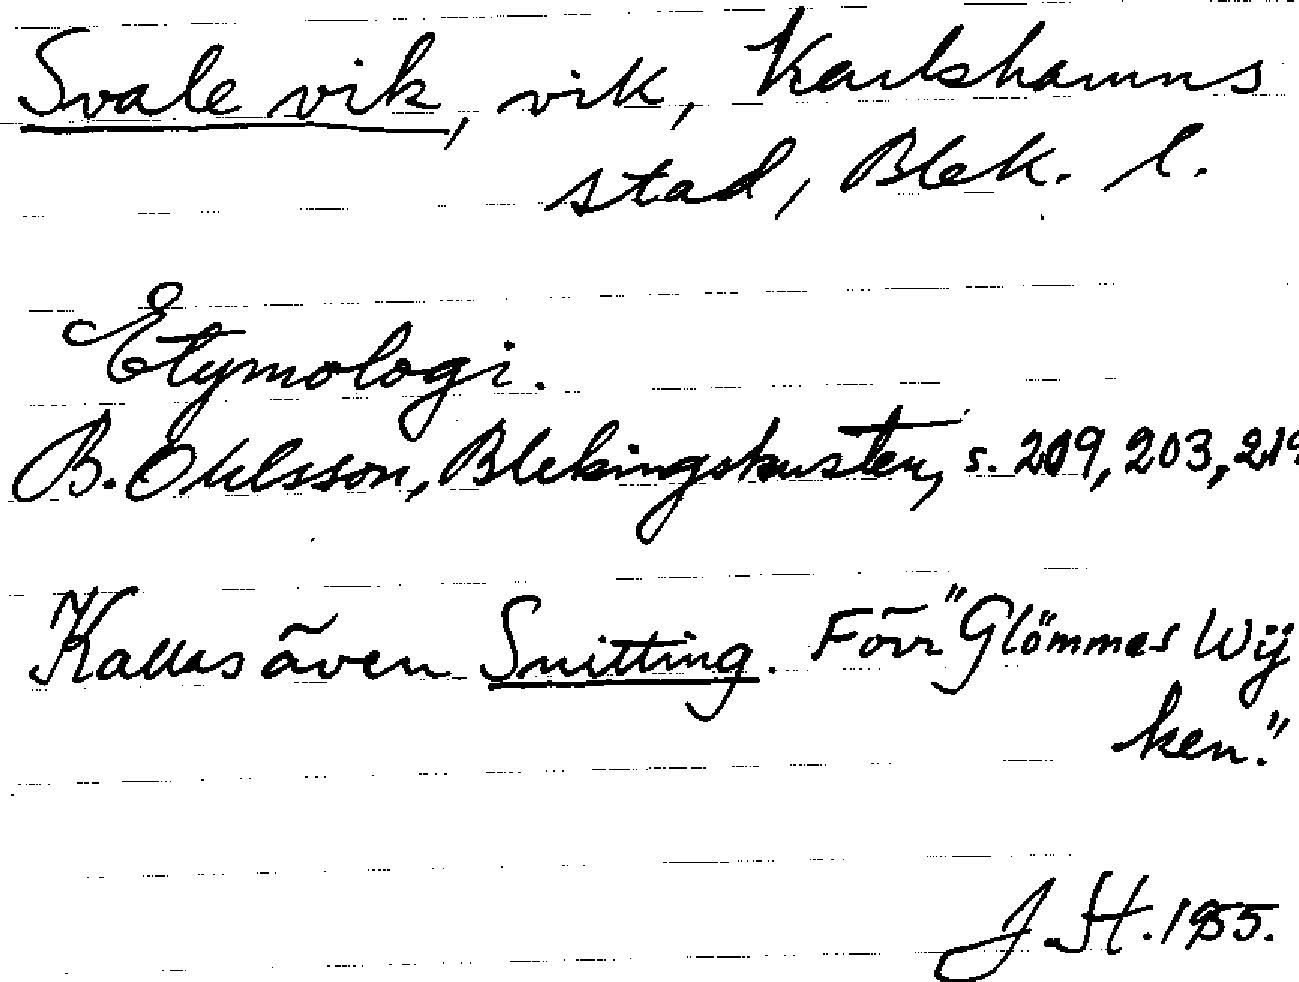 Svale vik, vik, Karlshamns
stad, Blek. l.
Etymologi.
B. Ohlsson, Blekingskusten, s. 209, 203, 219
Kallas även Snitting. Förr "Glömmas Wij
ken."
J. H. 1955.